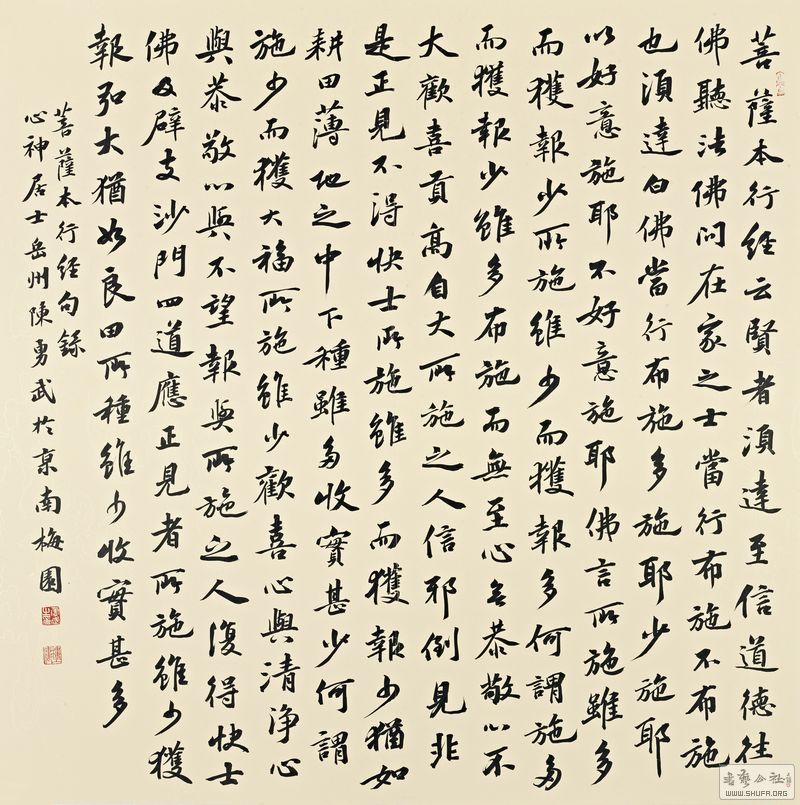 菩薩本行經云賢者須達至信道德往
佛聽法佛問在家之士當行布施不布施
也須達白佛當行布施多施耶少施耶
以好意施耶不好意施耶佛言所施雖多
而獲報少所施雖少而獲報多何謂施多
而獲報少雖多布施而無至心無恭敬心不
大歡喜貢高自大所施之人信邪倒見非
是正見不得快士所施雖多而獲報少猶如
耕田薄地之中下種雖多收實甚少何謂
施少而獲大福所施雖少歡喜心與清淨心
與恭敬心與不望報與所施之人復得快士
佛及辟支沙門四道應正見者所施雖少獲
報弘大猶如良田所種雖少收實甚多
菩薩本行經句錄
心神居士岳州陳勇武於京南梅園
書藝公社
WWW.SHUFA.ORG